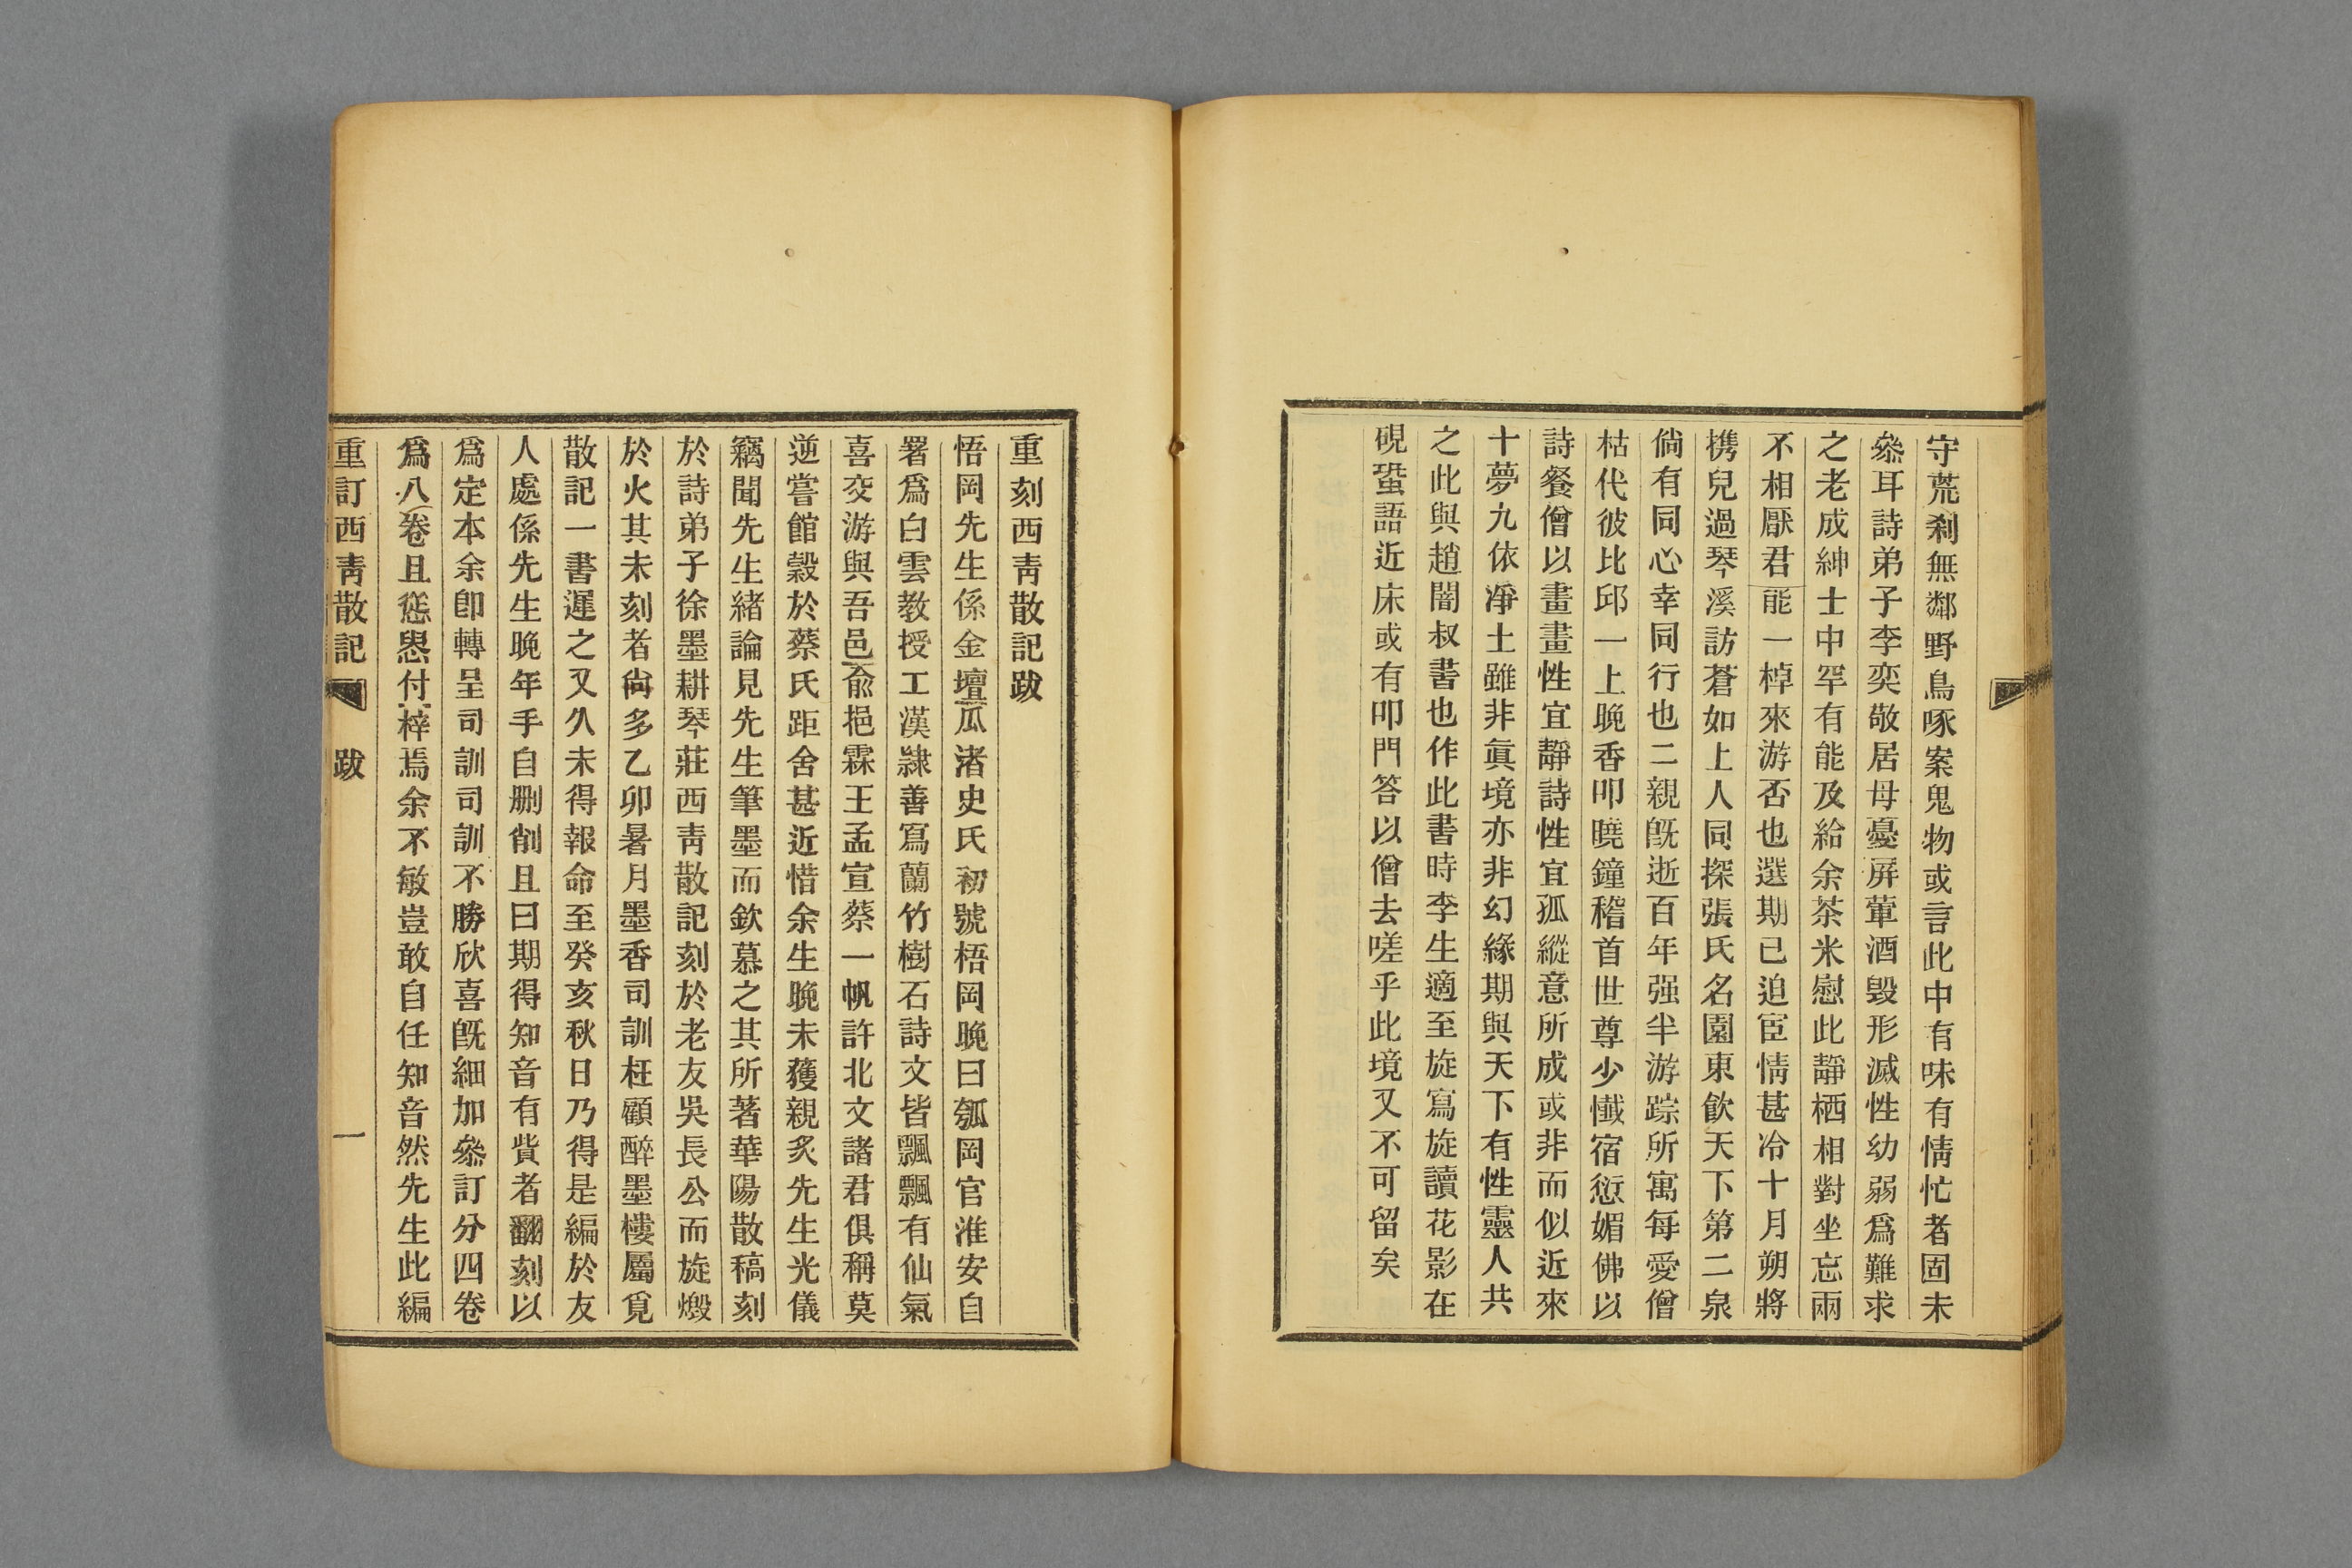 守荒刹無鄰野鳥啄案鬼物或言此中有味有情忙者固未
叅耳詩弟子李奕敬居母憂屏葷酒毀形滅性幼弱爲難求
之老成紳士中罕有能及給余茶米慰此靜栖相對坐忘兩
不相厭君能一棹來游否也選期已迫宦情甚冷十月朔將
携兒過琴溪訪蒼如上人同探張氏名園東飮天下第二泉
倘有同心幸同行也二親旣逝百年强半游踪所寓每愛僧
枯代彼比邱一上晚香叩曉鐘稽首世尊少懺宿愆媚佛以
詩餐僧以畫畫性宜靜詩性宜孤縱意所成或非而似近來
十夢九依淨土雖非眞境亦非幻緣期與天下有性靈人共
之此與趙闇叔書也作此書時李生適至旋寫旋讀花影在
硯蛩語近床或有叩門答以僧去嗟乎此境又不可留矣
重刻西靑散記跋
悟岡先生係金壇瓜渚史氏初號梧岡晚曰瓠岡官淮安自
署爲白雲教授工漢隸善寫蘭竹樹石詩文皆飄飄有仙氣
喜交游與吾邑俞挹霖王孟宣蔡一帆許北文諸君俱稱莫
逆嘗館穀於蔡氏距舍甚近惜余生晚未獲親炙先生光儀
竊聞先生緒論見先生筆墨而欽慕之其所著華陽散稿刻
於詩弟子徐墨耕琴莊西靑散記刻於老友吳長公而旋燬
於火其未刻者尙多乙卯暑月墨香司訓枉顧醉墨樓屬覓
散記一書遲之又久未得報命至癸亥秋日乃得是編於友
人處係先生晚年手自刪削且曰期得知音有貲者翻刻以
爲定本余卽轉呈司訓司訓不勝欣喜旣細加叅訂分四卷
爲八卷且慫恿付梓焉余不敏豈敢自任知音然先生此編
重訂西靑散記 跋 一